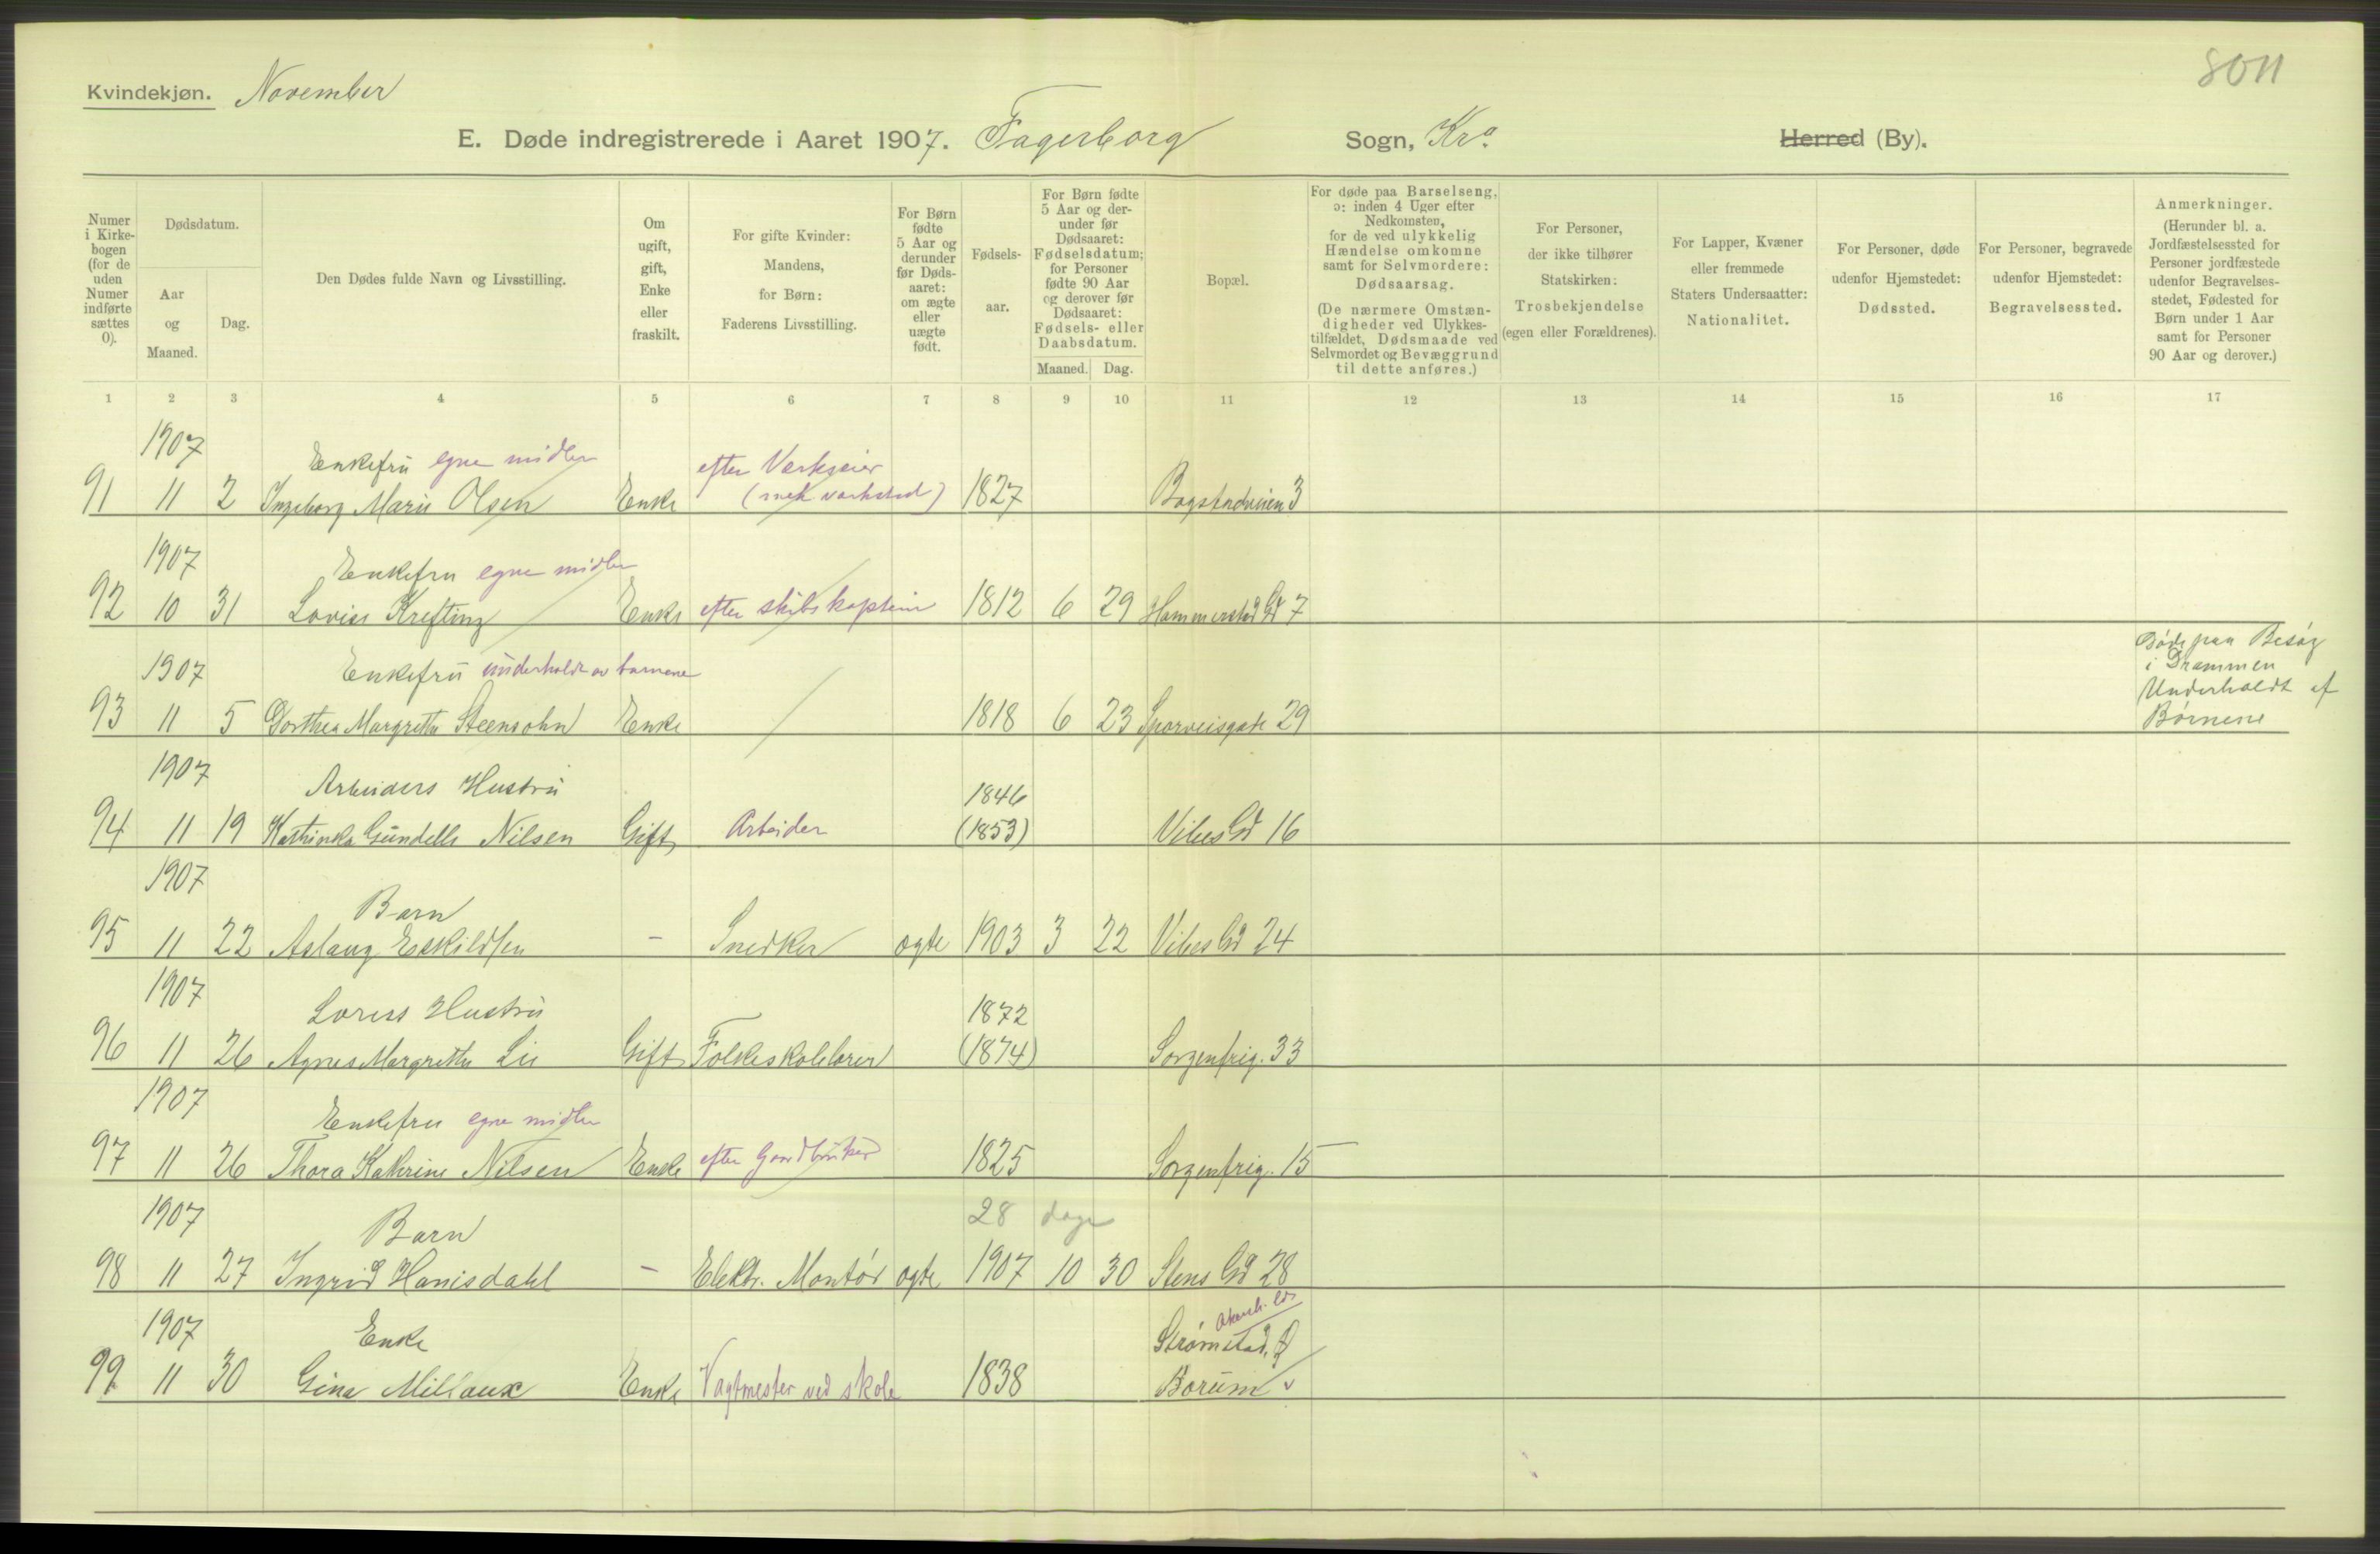 8011
Kvindekjøn. November
E. Døde indregistrerede i Aaret 1907. Fagerborg Sogn, Kra. Herred (By).
Numer i Kirkebogen (for de uden Numer indførte sættes 0).
Dødsdatum.
Aar og Maaned.
Dag.
Den Dødes fulde Navn og Livsstilling.
Om ugift, gift, Enke eller fraskilt.
For gifte Kvinder: Mandens, for Børn: Faderens Livsstilling.
For Børn fødte 5 Aar og derunder før Dødsaaret: om ægte eller uægte født.
Fødselsaar.
For Børn fødte 5 Aar og derunder før Dødsaaret: Fødselsdatum; for Personer fødte 90 Aar og derover før Dødsaaret: Fødsels- eller Daabsdatum.
Maaned. Dag.
Bopæl.
For døde paa Barselseng, ɔ: inden 4 Uger efter Nedkomsten, for de ved ulykkelig Hændelse omkomne samt for Selvmordere: Dødsaarsag.
(De nærmere Omstændigheder ved Ulykkestilfældet, Dødsmaade ved Selvmordet og Bevæggrund til dette anføres.)
For Personer, der ikke tilhører Statskirken: Trosbekjendelse (egen eller Forældrenes).
For Lapper, Kvæner eller fremmede Staters Undersaatter: Nationalitet.
For Personer, døde udenfor Hjemstedet: Dødssted.
For Personer, begravede udenfor Hjemstedet: Begravelsessted.
Anmerkninger. (Herunder bl. a. Jordfæstelsessted for Personer jordfæstede udenfor Begravelsesstedet, Fødested for Børn under 1 Aar samt for Personer 90 Aar og derover.)
1 2 3 4 5 6 7 8 9 10 11 12 13 14 15 16 17
1907 Enkefru egne midler efter Verkseier
91 11 2 Ingeborg Marie Olsen Enke (mek verksted) 1827 Bogstadveien 3
1907 Enkefru egne midler
92 10 31 Lovise Krefting Enke efter skibskaptein 1812 6 29 Hammerstad Gd 7
1907 Enkefru underholdt av barnene
93 11 5 Dorthea Margrethe Steensohn Enke 1818 6 23 Sporveisgade 29
Døde paa Besøg
i Drammen
Underholdt af
Børnene
1907 Arbeiders Hustru 1846
94 11 19 Kathinka Gundelle Nilsen Gift Arbeider (1853) Vibes Gd 16
1907 Barn
95 11 22 Aslaug Eskildsen - Snedker ægte 1903 3 22 Vibes Gd 24
1907 Hustru 1872
96 11 26 Agnes Margrethe Lie Gift Folkeskolelærer (1874) Sorgenfrig. 33
1907 Enkefru egne midler
97 11 26 Thora Kathrine Nilsen Enke efter Gaardbruker 1825 Sorgenfrig. 15
1907 Barn 28 dage
98 11 27 Ingrid Hanisdahl - Elektr. Montør ægte 1907 10 30 Stens Gd 28
1907 Enke Strømstad,
99 11 30 Gina Millaux Enke Vagtmester ved skole 1838 Bærum